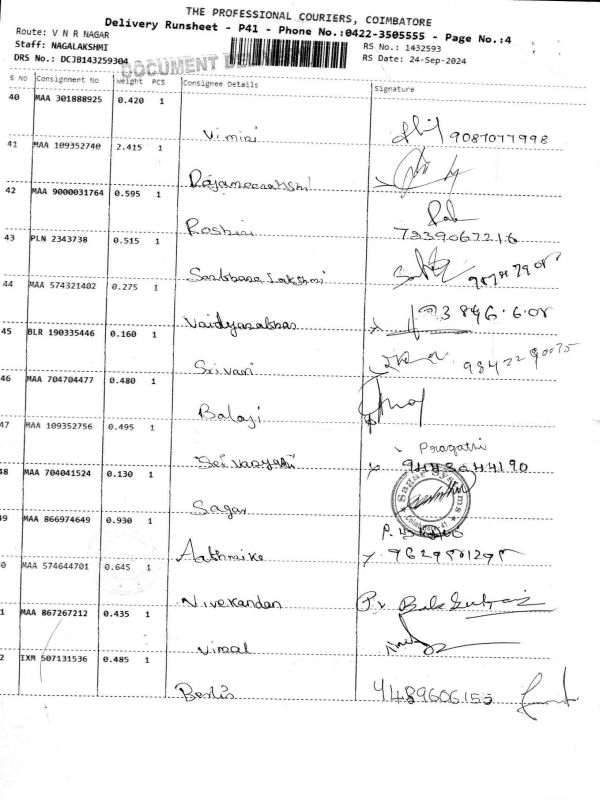 THE PROFESSIONAL COURIERS, COIMBATORE
Delivery Runsheet - P41 - Phone No.:0422-3505555 - Page No.:4
Route: V N R NAGAR
Staff: NAGALAKSHMI RS No.: 1432593
DRS No.: DCJB143259304 DOCUMENT DE RS Date: 24-Sep-2024
S NO Consignment No Weight PCS Consignee Details Signature
40 MAA 301888925 0.420 1
Vimiri 9087077998
41 MAA 109352740 2.415 1
Rajameenakshi
42 MAA 9000031764 0.595 1
Roshini 7339067216
43 PLN 2343738 0.515 1
Lakshmi
44 MAA 574321402 0.275 1
45 BLR 190335446 0.160 1
Srivari
46 MAA 704704477 0.480 1
Balaji
47 MAA 109352756 0.495 1
Pragathi
48 MAA 704041524 0.130 1
Sagar Sagar Systems
49 MAA 866974649 0.930 1
Aathmike
0 MAA 574644701 0.645 1
Vivekandan
1 MAA 867267212 0.435 1
Vimal
2 IXM 507131536 0.485 1